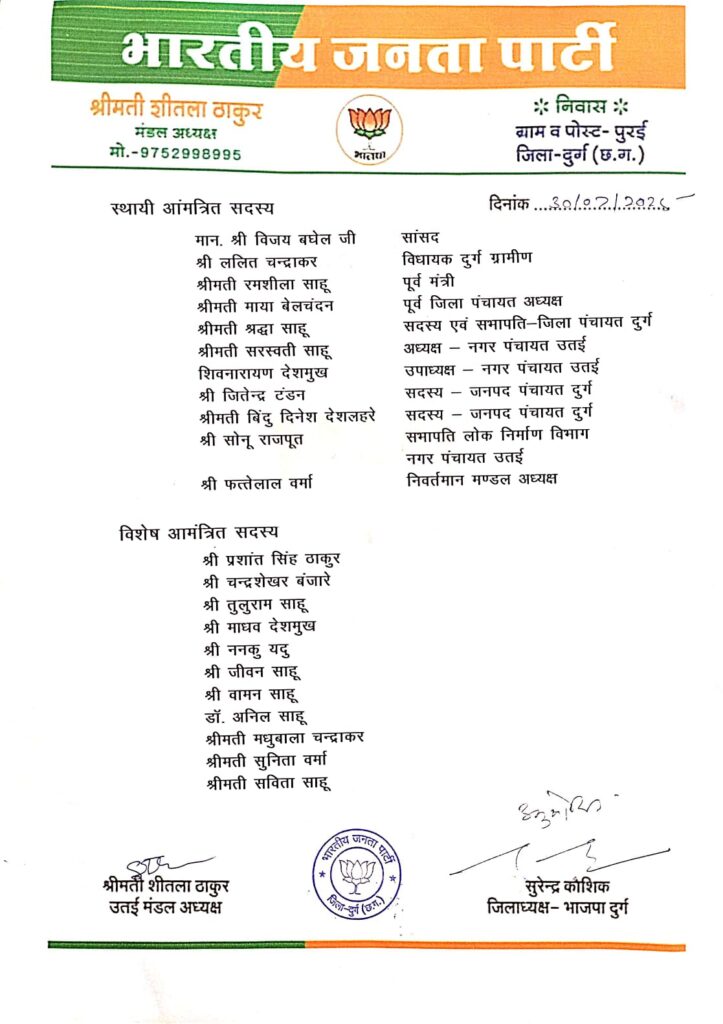 भारतीय जनता पार्टी
श्रीमती शीतला ठाकुर
मंडल अध्यक्ष
मो.-9752998995
भाजपा
❊ निवास ❊
ग्राम व पोस्ट- पुरई
जिला-दुर्ग (छ.ग.)
दिनांक
स्थायी आंमत्रित सदस्य
मान. श्री विजय बघेल जी सांसद
श्री ललित चन्द्राकर विधायक दुर्ग ग्रामीण
श्रीमती रमशीला साहू पूर्व मंत्री
श्रीमती माया बेलचंदन पूर्व जिला पंचायत अध्यक्ष
श्रीमती श्रद्धा साहू सदस्य एवं सभापति–जिला पंचायत दुर्ग
श्रीमती सरस्वती साहू अध्यक्ष – नगर पंचायत उतई
शिवनारायण देशमुख उपाध्यक्ष – नगर पंचायत उतई
श्री जितेन्द्र टंडन सदस्य – जनपद पंचायत दुर्ग
श्रीमती बिंदु दिनेश देशलहरे सदस्य – जनपद पंचायत दुर्ग
श्री सोनू राजपूत सभापति लोक निर्माण विभाग
नगर पंचायत उतई
श्री फत्तेलाल वर्मा निवर्तमान मण्डल अध्यक्ष
विशेष आमंत्रित सदस्य
श्री प्रशांत सिंह ठाकुर
श्री चन्द्रशेखर बंजारे
श्री तुलुराम साहू
श्री माधव देशमुख
श्री ननकु यदु
श्री जीवन साहू
श्री वामन साहू
डॉ. अनिल साहू
श्रीमती मधुबाला चन्द्राकर
श्रीमती सुनिता वर्मा
श्रीमती सविता साहू
श्रीमती शीतला ठाकुर
उतई मंडल अध्यक्ष
भारतीय जनता पार्टी
जिला-दुर्ग (छ.ग.)
सुरेन्द्र कौशिक
जिलाध्यक्ष– भाजपा दुर्ग